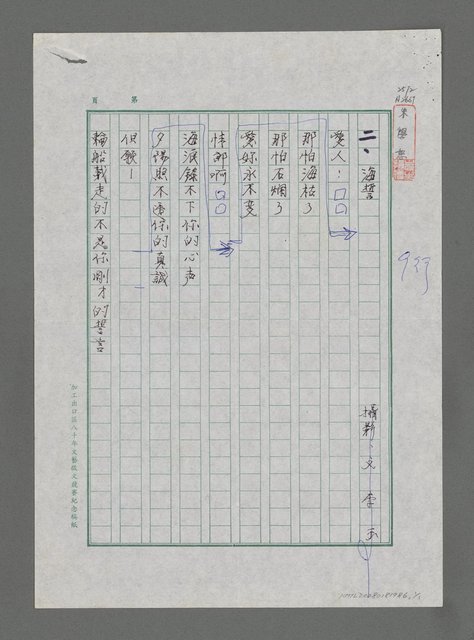 二、海誓
攝影、文 李
愛人：□□
那怕海枯了
那怕石爛了
愛妳永不变
情郎啊□□
海浪鎖不下你的心声
夕陽照不透你的真誠
但願！
輪船載走的不是你剛才的誓言
9行
第
頁
加工出口區八十年文藝散文競賽紀念稿紙